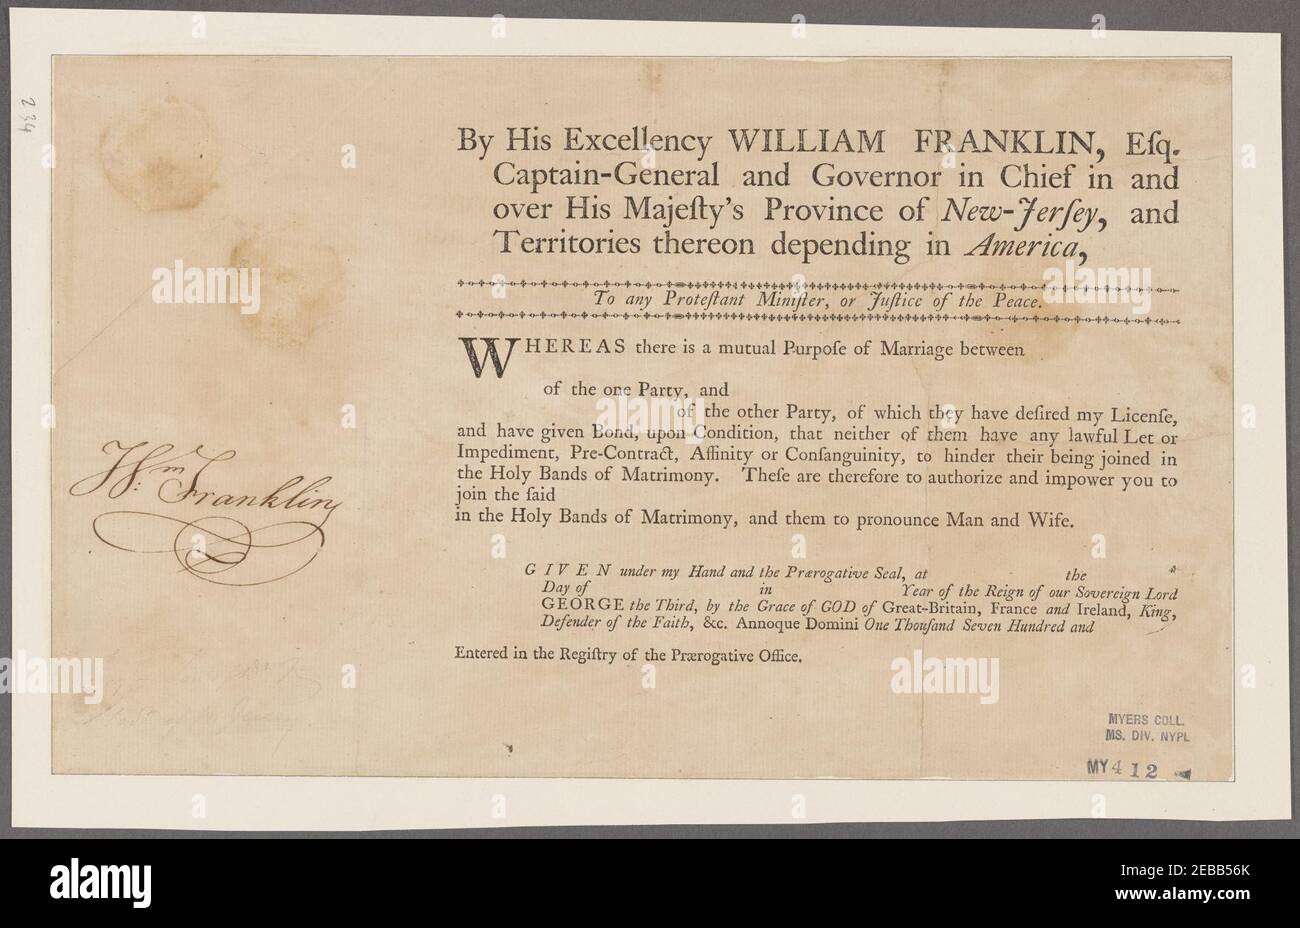 234
By His Excellency WILLIAM FRANKLIN, Eſq.
Captain-General and Governor in Chief in and
over His Majeſty's Province of New-Jerſey, and
Territories thereon depending in America,
To any Proteſtant Miniſter, or Juſtice of the Peace.
WHEREAS there is a mutual Purpoſe of Marriage between
of the one Party, and
of the other Party, of which they have deſired my Licenſe,
and have given Bond, upon Condition, that neither of them have any lawful Let or
Impediment, Pre-Contract, Affinity or Conſanguinity, to hinder their being joined in
the Holy Bands of Matrimony. Theſe are therefore to authorize and impower you to
join the ſaid
in the Holy Bands of Matrimony, and them to pronounce Man and Wife.
Wm: Franklin
GIVEN under my Hand and the Prærogative Seal, at the
Day of in Year of the Reign of our Sovereign Lord
GEORGE the Third, by the Grace of GOD of Great-Britain, France and Ireland, King,
Defender of the Faith, &c. Annoque Domini One Thouſand Seven Hundred and
Entered in the Regiſtry of the Prærogative Office.
MYERS COLL.
MS. DIV. NYPL
MY 412
alamy
alamy
Image ID: 2EBB56K
www.alamy.com